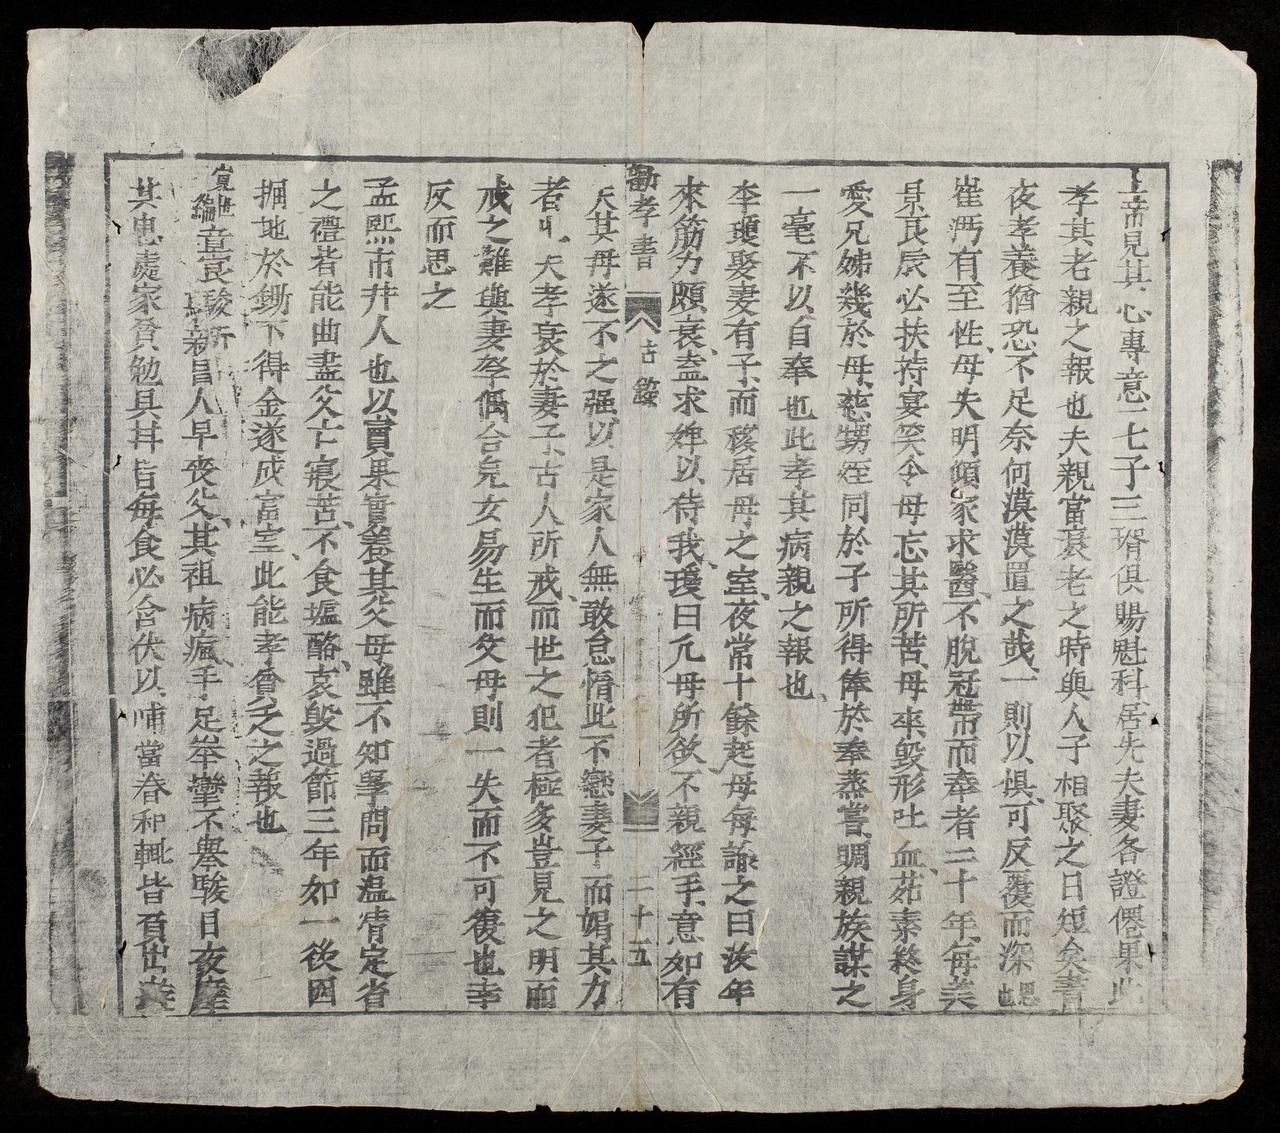 上帝見其心專意一七子三壻俱賜魁科居先夫妻各證僊果此
孝其老親之報也夫親當衰老之時與人子相聚之日短矣晝
夜孝養猶恐不足奈何漠漠置之哉一則以惧可反覆而深思也
崔沔有至性母失明傾家求醫不脫冠帶而奉者三十年每美
景良辰必扶持宴笑令母忘其所苦母卒毀形吐血茹素終身
愛兄姊幾於母慈甥姪同於子所得俸於奉蒸嘗賙親族謀之
一毫不以自奉也此孝其病親之報也
李瓊娶妻有子而移居母之室夜常十餘起母每諭之曰汝年
來筋力頗衰盍求婢以待我瓊曰凡母所欲不親經手意如有
勸孝書 古籤 二十五
失其母遂不之强以是家人無敢怠惰此不戀妻子而娟其力
者也夫孝衰於妻子古人所戒而世之犯者極多豈見之明而
戒之難與妻孥偶合兒女易生而父母則一失而不可復也幸
反而思之
孟熙市井人也以賣果實養其父母雖不知學問而温凊定省
之禮皆能曲盡父亡寢苫不食塩酪哀毀過節三年如一後因
掘地於鋤下得金遂成富室此能孝貧乏之報也
章袞駿新昌人早喪父其祖病瘋手足拳攣不舉駿日夜座
其患處家貧勉具甘旨每食必合伏以哺當春和輒皆負出遊